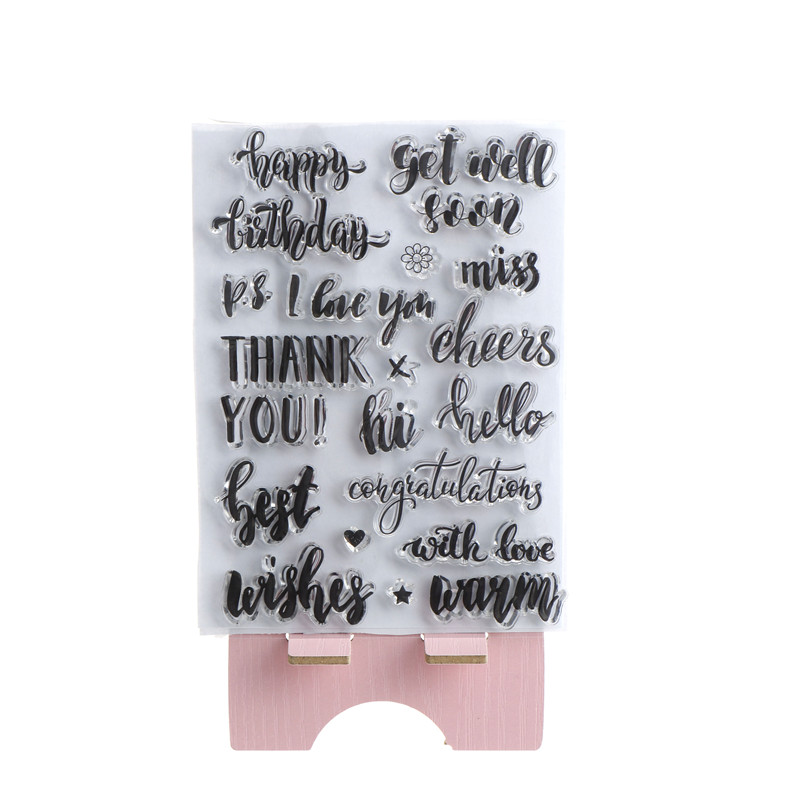 happy
birthday
get well
soon
miss
p.s. I love you
cheers
THANK
YOU!
x
hi
hello
congratulations
best
wishes
with love
warm